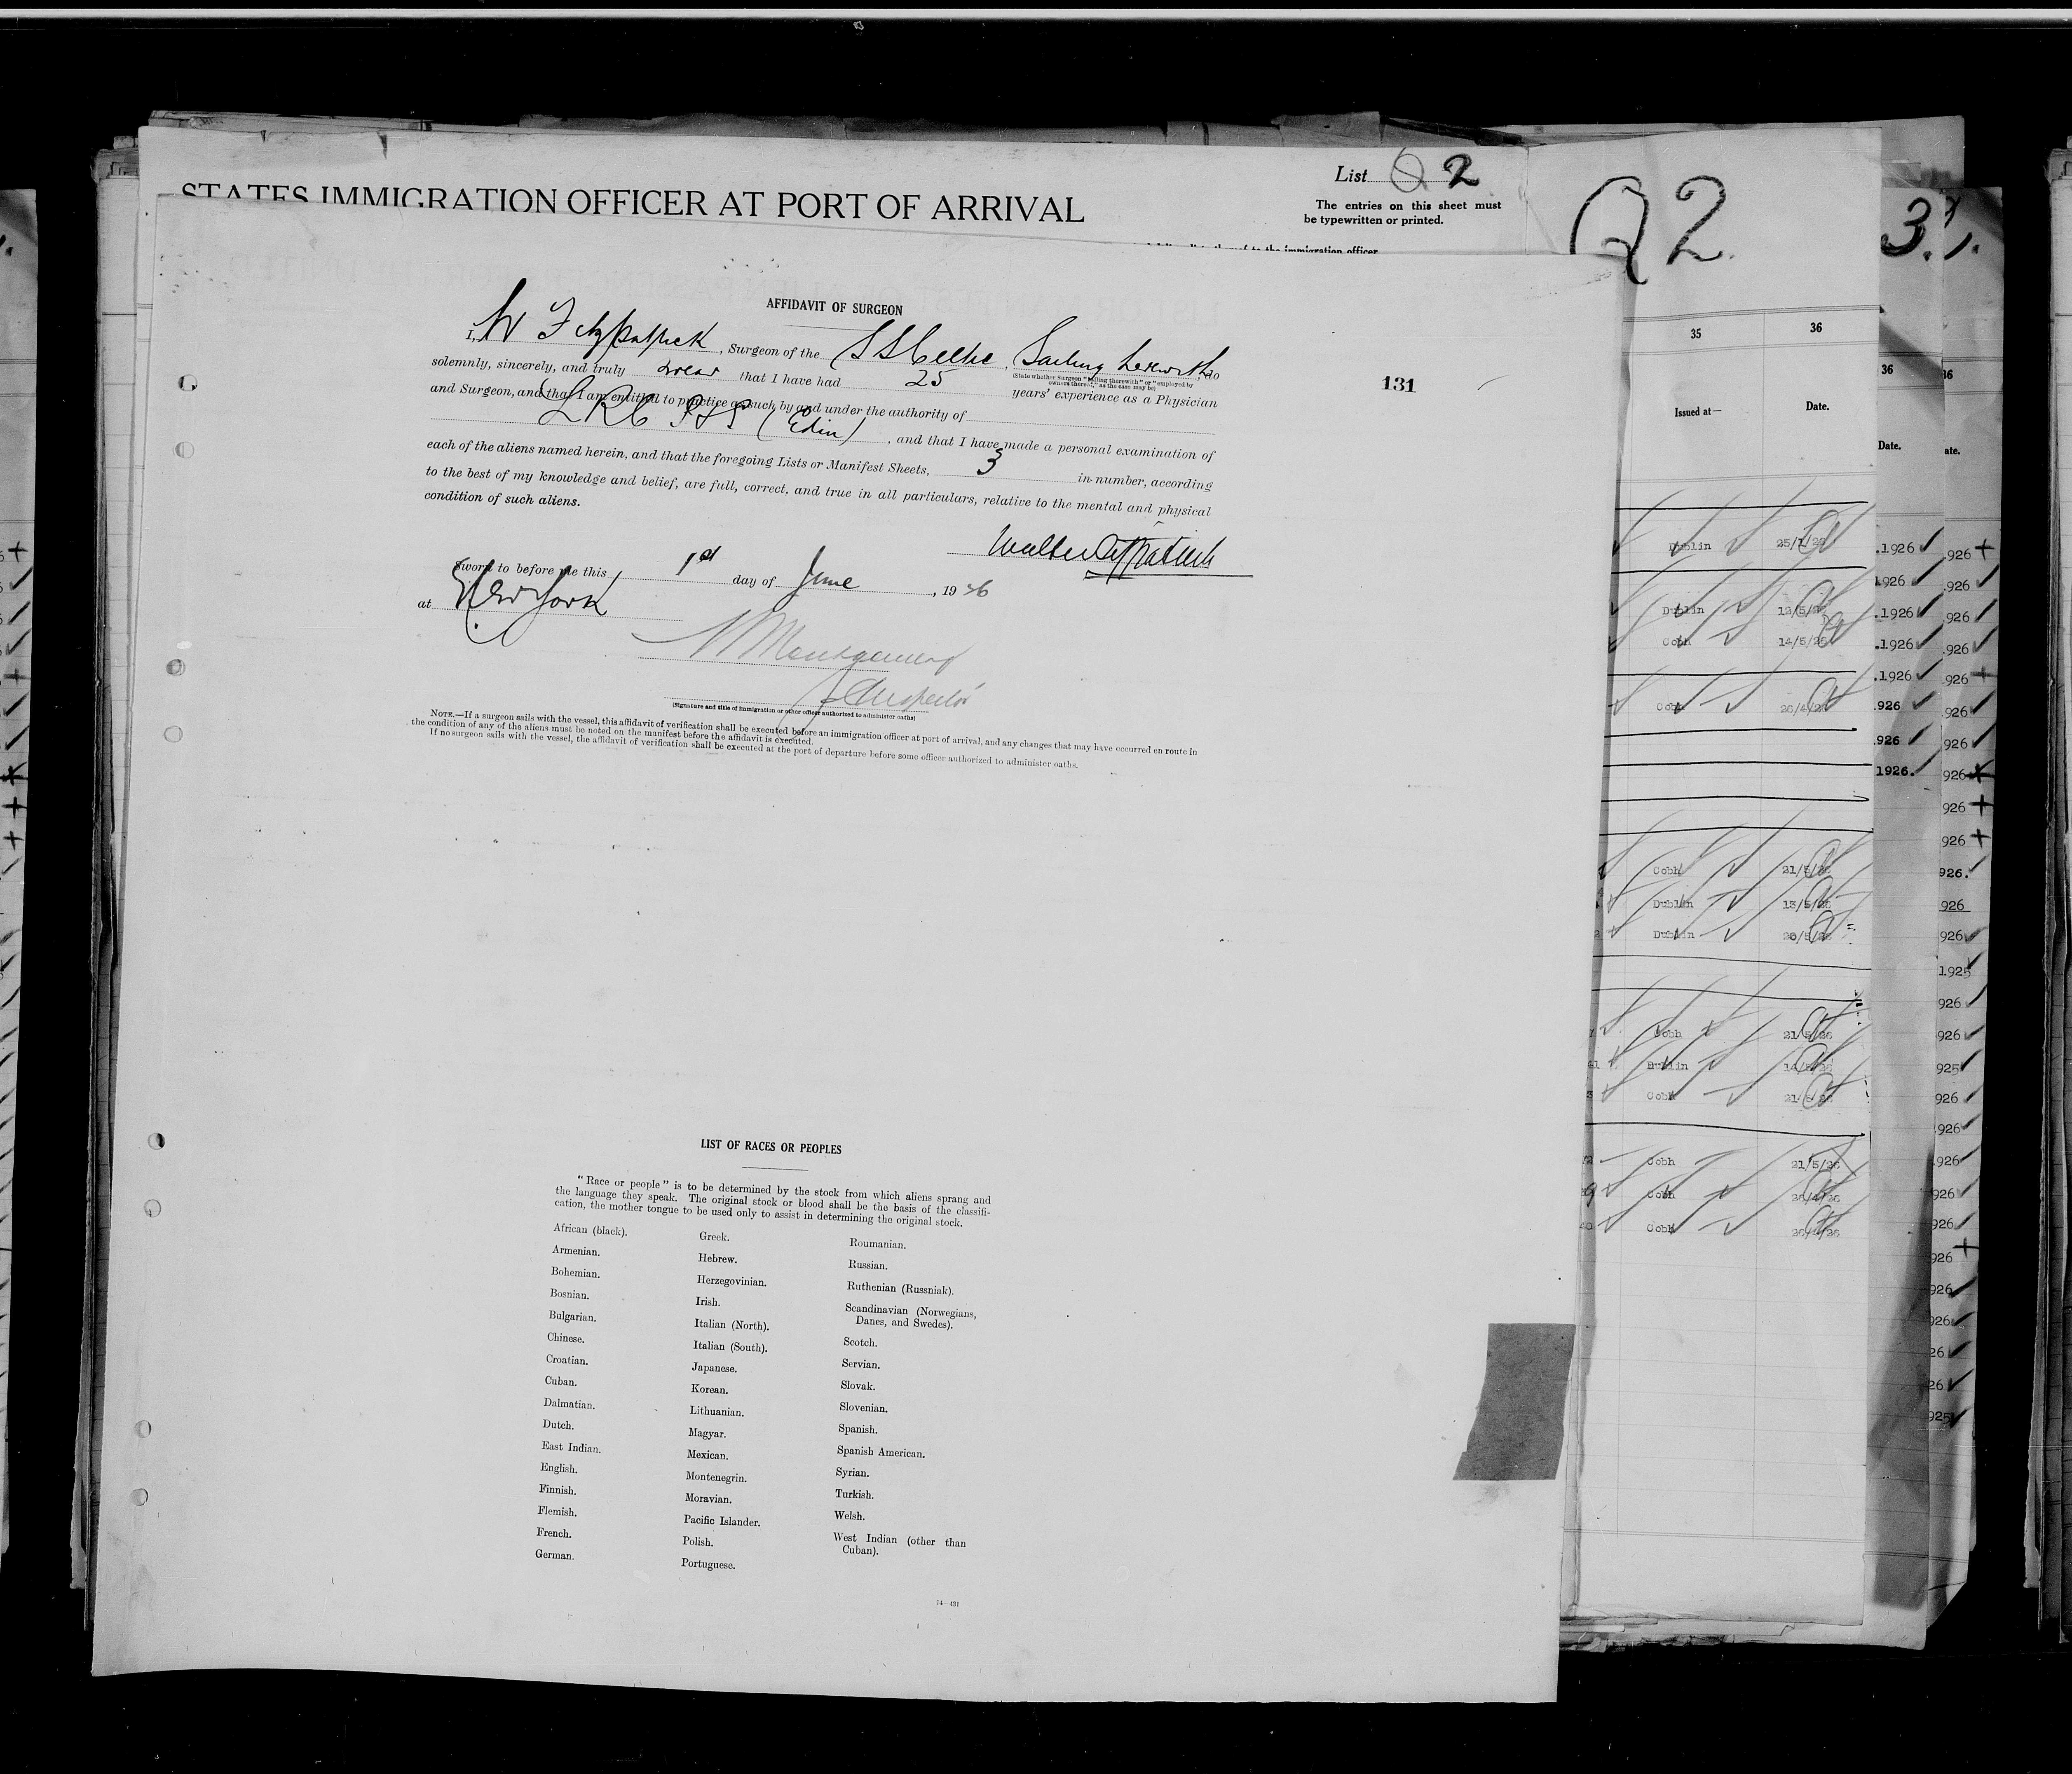 List Q 2
STATES IMMIGRATION OFFICER AT PORT OF ARRIVAL
The entries on this sheet must
be typewritten or printed.
to the immigration officer
Q2
3.
AFFIDAVIT OF SURGEON
I, W Fitzpatrick, Surgeon of the SS Celtic, Sailing therewith, do
(State whether Surgeon "sailing therewith" or "employed by
owners thereof," as the case may be)
solemnly, sincerely, and truly swear that I have had 25 years' experience as a Physician
and Surgeon, and that I am entitled to practice as such by and under the authority of
LRC P&S (Edin), and that I have made a personal examination of
each of the aliens named herein, and that the foregoing Lists or Manifest Sheets, 3 in number, according
to the best of my knowledge and belief, are full, correct, and true in all particulars, relative to the mental and physical
condition of such aliens.
Walter Fitzpatrick
Sworn to before me this 1st day of June, 1926
at New York
Montgomery
Inspector
(Signature and title of immigration or other officer authorized to administer oaths)
NOTE.—If a surgeon sails with the vessel, this affidavit of verification shall be executed before an immigration officer at port of arrival, and any changes that may have occurred en route in
the condition of any of the aliens must be noted on the manifest before the affidavit is executed.
If no surgeon sails with the vessel, the affidavit of verification shall be executed at the port of departure before some officer authorized to administer oaths.
131
LIST OF RACES OR PEOPLES
"Race or people" is to be determined by the stock from which aliens sprang and
the language they speak. The original stock or blood shall be the basis of the classifi-
cation, the mother tongue to be used only to assist in determining the original stock.
African (black).
Armenian.
Bohemian.
Bosnian.
Bulgarian.
Chinese.
Croatian.
Cuban.
Dalmatian.
Dutch.
East Indian.
English.
Finnish.
Flemish.
French.
German.
Greek.
Hebrew.
Herzegovinian.
Irish.
Italian (North).
Italian (South).
Japanese.
Korean.
Lithuanian.
Magyar.
Mexican.
Montenegrin.
Moravian.
Pacific Islander.
Polish.
Portuguese.
Roumanian.
Russian.
Ruthenian (Russniak).
Scandinavian (Norwegians,
Danes, and Swedes).
Scotch.
Servian.
Slovak.
Slovenian.
Spanish.
Spanish American.
Syrian.
Turkish.
Welsh.
West Indian (other than
Cuban).
14—431
35 36
Issued at— Date.
Dublin 25/1/26
Dublin
Cobh 14/5/26
Cobh 26/4/26
Cobh 21/5/26
Dublin 13/5/26
Dublin 20/5/26
Cobh 21/5/26
Dublin 14/5/26
Cobh 21/5/26
Cobh 21/5/26
Cobh 26/4/26
Cobh 26/4/26
36
Date.
.1926
1926
.1926
.1926
.1926
926
926
1926.
36
ate.
926
926
926
926
926
926
926
926
926
926
926.
926
926
1925
926
926
925
926
926
926
926
926
926
926
926
26
26
925